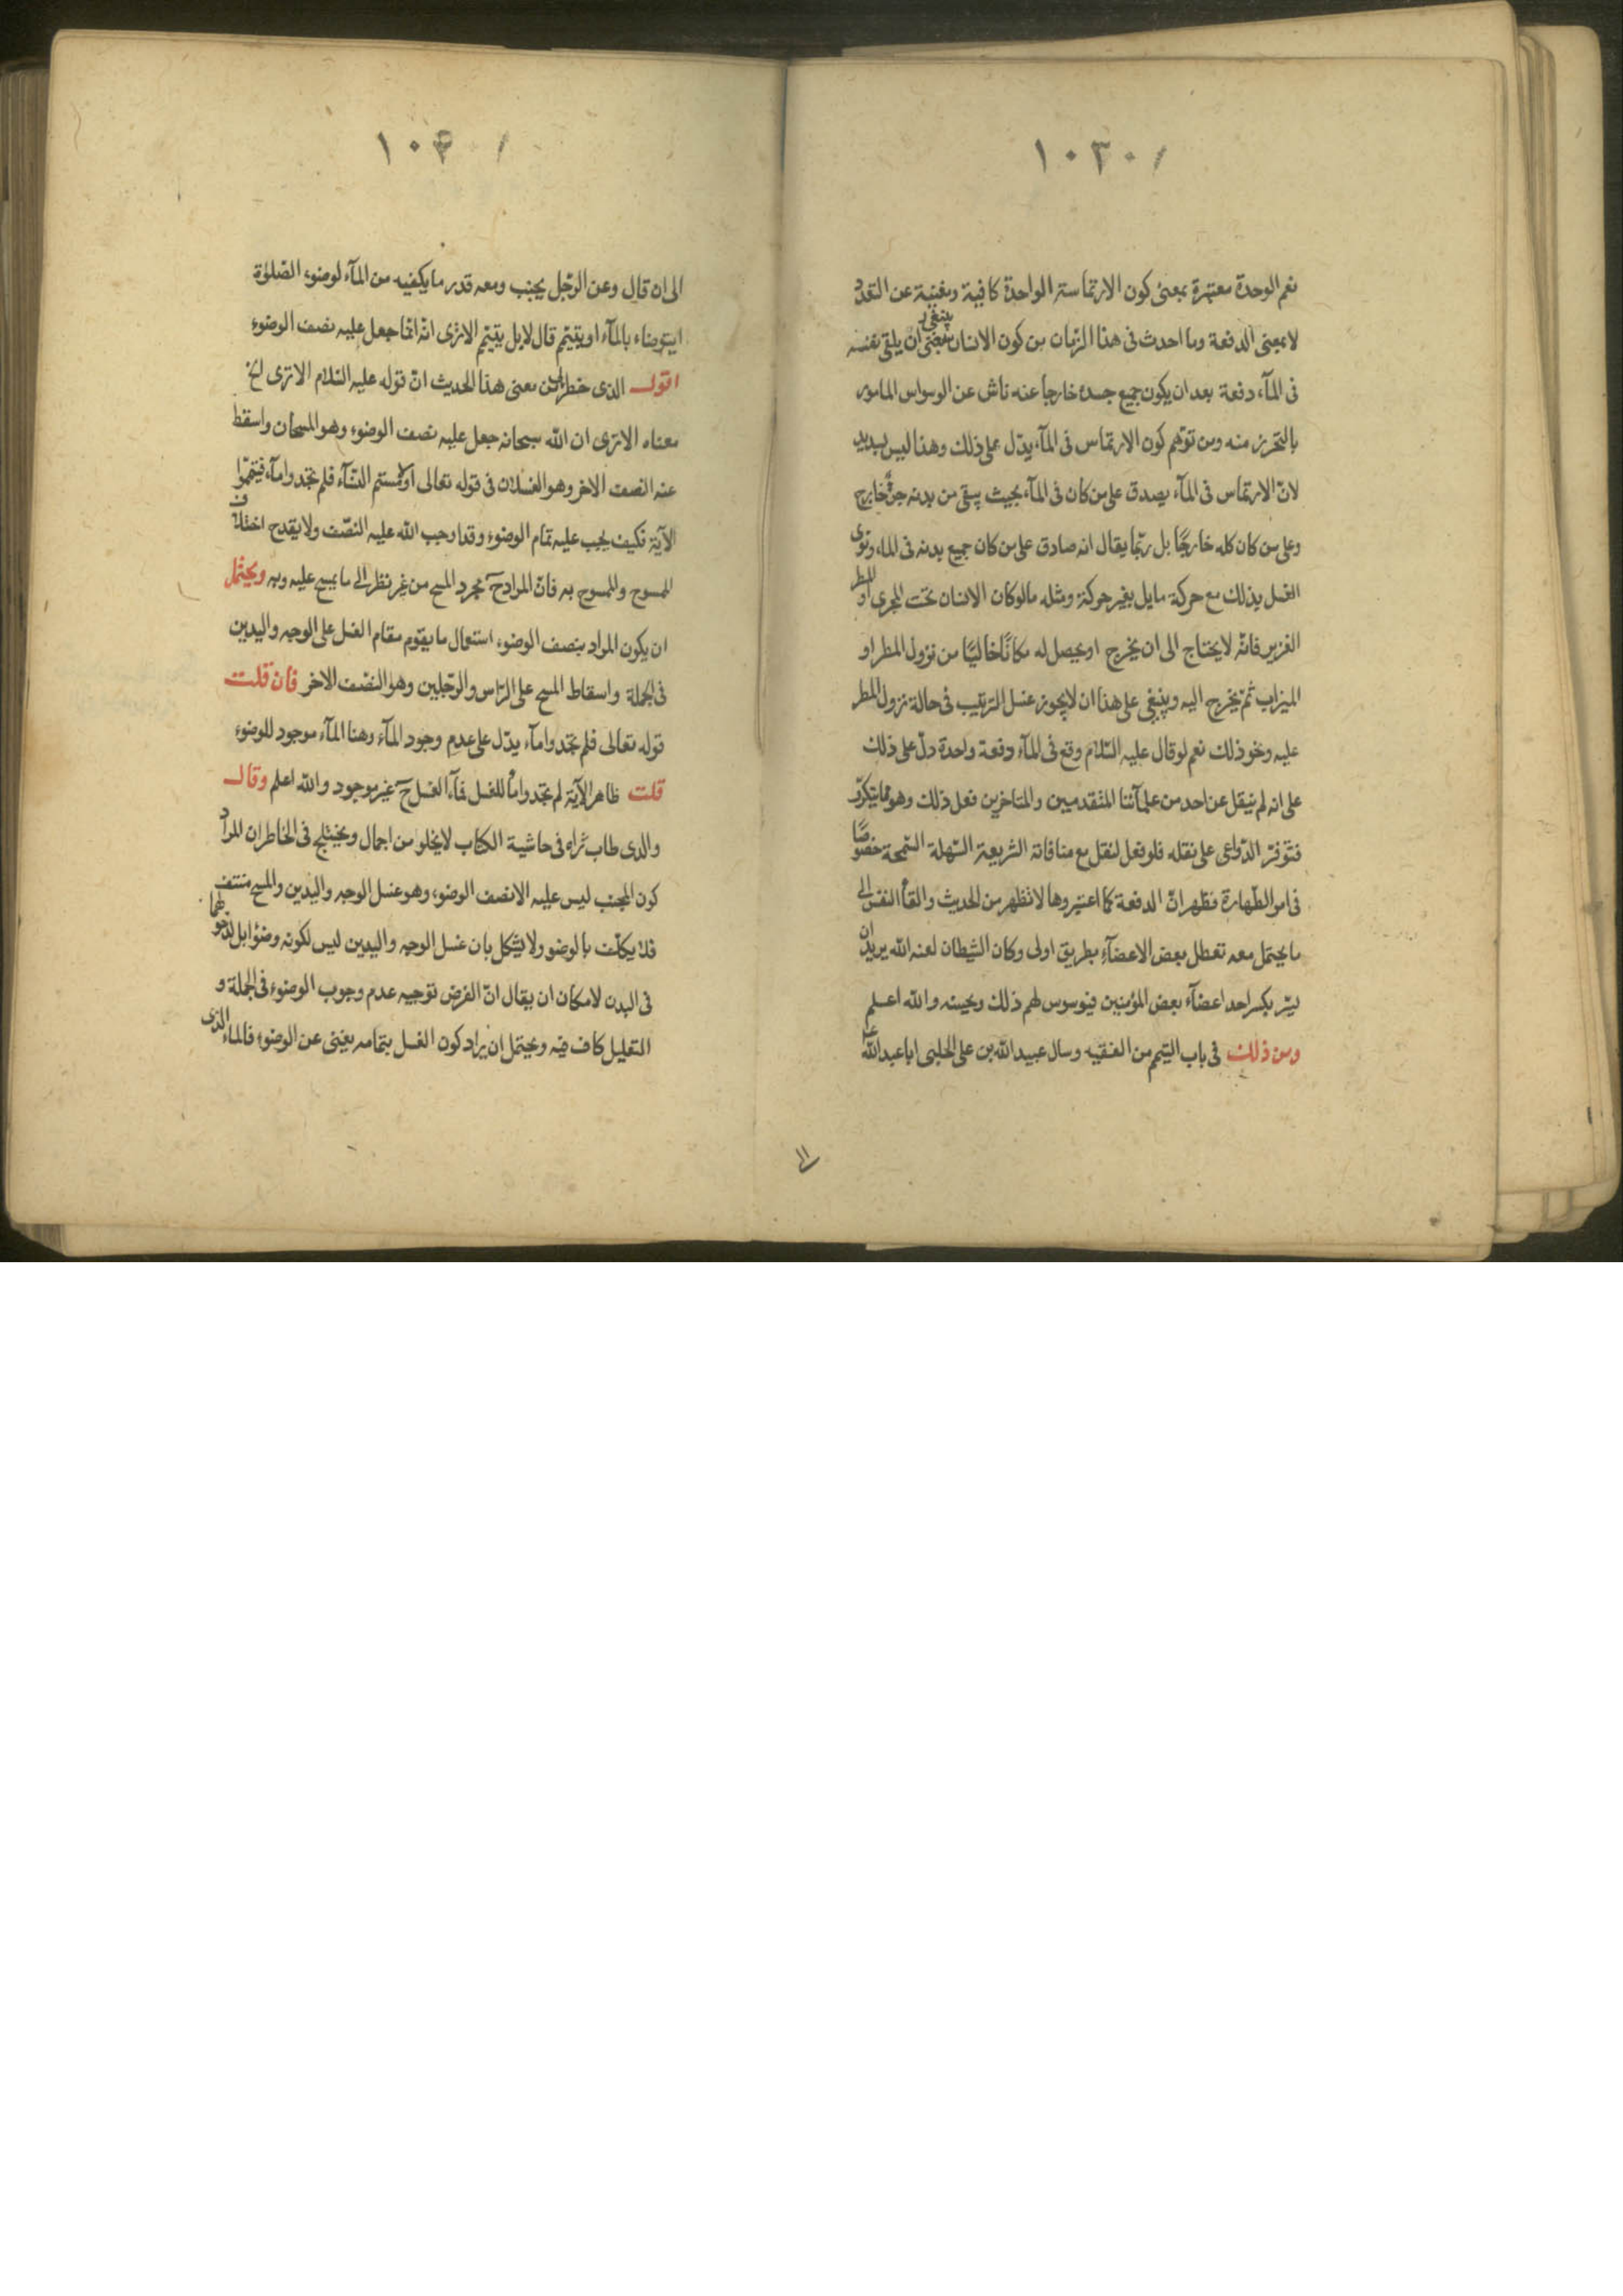 ١٠٣٠
نعم الوحدة معتبرة بمعنى كون الارتماسة الواحدة كافية ومغنية عن التعدد
لا بمعنى الدفعة وما احدث فى هذا الزمان من كون الانسان ينبغى ان يلقى نفسه
فى المآء دفعة بعد ان يكون جميع جسده خارجا عنه ناش عن الوسواس المامور
بالتحرز منه ومن توهم كون الارتماس فى المآء يدل على ذلك وهذا ليس بسديد
لان الارتماس فى المآء يصدق على من كان فى المآء بحيث يبقى من بدنه جزء خارج
وعلى من كان كله خارجًا بل ربما يقال انه صادق على من كان جميع بدنه فى الماء ونوى
الغسل بذلك مع حركة ما بل بغير حركة ومثله ما لو كان الانسان تحت المجرى او المطر
الغزير فانه لا يحتاج الى ان يخرج او يحصل له مكانًا خاليًا من نزول المطر او
الميزاب ثم يخرج اليه وينبغى على هذا ان لا يجوز غسل الترتيب فى حالة نزول المطر
عليه ونحو ذلك نعم لو قال عليه السّلام وقع فى المآء دفعة واحدة دلّ على ذلك
على انه لم ينقل عن احد من علمآئنا المتقدمين والمتاخرين فعل ذلك وهو مما يتكرّر
فتوفّر الدّواعى على نقله فلو فعل لنقل مع منافاته الشريعة السّهلة السّمحة خصوصًا
فى امر الطّهارة فظهر انّ الدفعة كما اعتبروها لا تظهر من الحديث والقآء النفس الى
ما يحتمل معه تعطل بعض الاعضآء بطريق اولى وكان الشيطان لعنه الله يريد ان
يسّر بكسر احد اعضآء بعض المؤمنين فيوسوس لهم ذلك ويحسنه والله اعلم
ومن ذلك فى باب التيمم من الفقيه وسال عبيد الله بن على الحلبى ابا عبد الله ع
١٠٤٠
الى ان قال وعن الرّجل يجنب ومعه قدر ما يكفيه من المآء لوضوء الصّلوة
ايتوضاء بالمآء او يتيمّم قال لا بل يتيمّم الا ترى انّه انّما جعل عليه نصف الوضوء
اقول الذى خطر لى من معنى هذا الحديث انّ قوله عليه السّلام الا ترى الخ
معناه الا ترى ان الله سبحانه جعل عليه نصف الوضوء وهو المسحان واسقط
عنه النصف الاخر وهو الغسلان فى قوله تعالى او لامستم النّسآء فلم تجدوا مآء فتيمّموا
الآية فكيف يجب عليه تمام الوضوء وقد اوجب الله عليه النصّف ولا يقدح اختلاف
الممسوح والممسوح به فانّ المراد ح مجرد المسح من غير نظر الى ما يمسح عليه وبه ويحتمل
ان يكون المراد بنصف الوضوء استعمال ما يقوم مقام الغسل على الوجه واليدين
فى الجملة واسقاط المسح على الرّاس والرّجلين وهو النصّف الاخر فان قلت
قوله تعالى فلم تجدوا مآء يدّل على عدم وجود المآء وهنا المآء موجود للوضوء
قلت ظاهر الآية لم تجدوا مآء للغسل فمآء الغسل ح غير موجود والله اعلم وقال
والدى طاب ثراه فى حاشية الكتاب لا يخلو من اجمال ويختلج فى الخاطر ان المراد
كون المجنب ليس عليه الا نصف الوضوء وهو غسل الوجه واليدين والمسح منتف
فلا يكلّف بالوضو ولا يشكل بان غسل الوجه واليدين ليس لكونه وضوًا بل لدخولهما
فى البدن لامكان ان يقال انّ الفرض توجيه عدم وجوب الوضوء فى الجملة و
التعليل كاف فيه ويحتمل ان يراد كون الغسل بتمامه يغنى عن الوضوء فالماء الذى